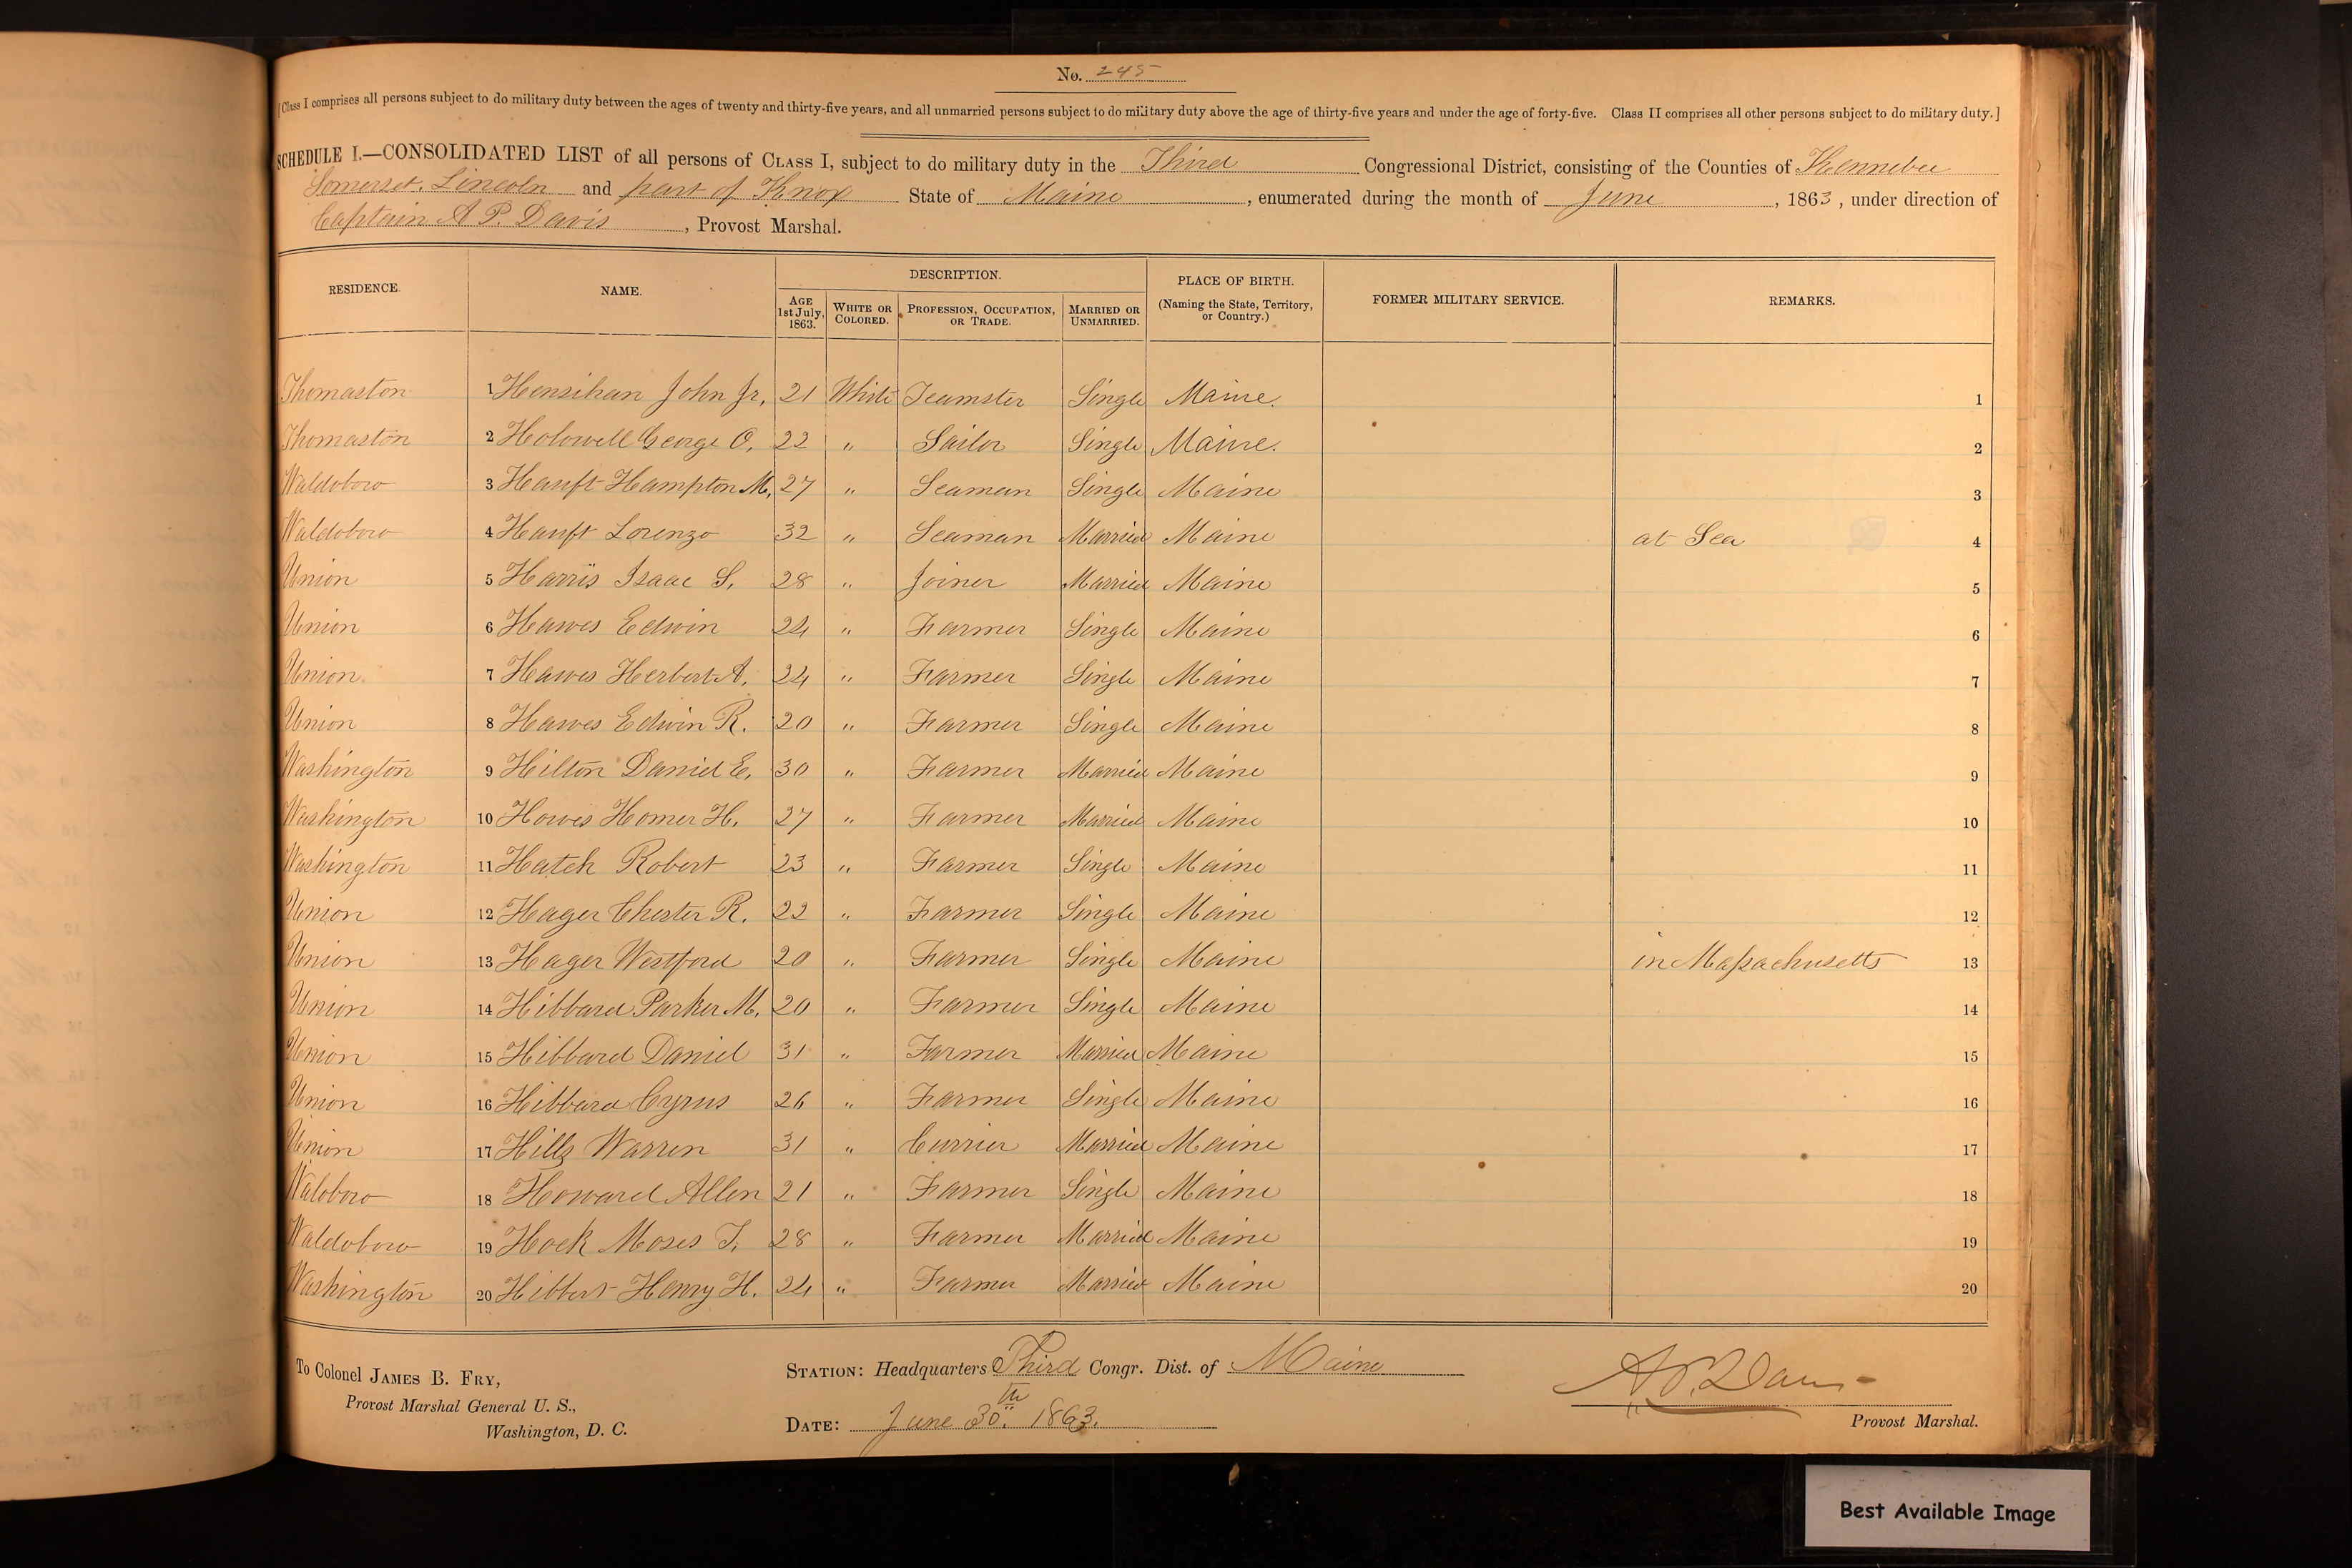 No. 245
[Class I comprises all persons subject to do military duty between the ages of twenty and thirty-five years, and all unmarried persons subject to do military duty above the age of thirty-five years and under the age of forty-five. Class II comprises all other persons subject to do military duty.]
SCHEDULE I.—CONSOLIDATED LIST of all persons of CLASS I, subject to do military duty in the Third Congressional District, consisting of the Counties of Kennebec
Somerset, Lincoln and part of Knox State of Maine, enumerated during the month of June, 1863, under direction of
Captain A. P. Davis, Provost Marshal.
RESIDENCE. NAME. DESCRIPTION. PLACE OF BIRTH. (Naming the State, Territory, or Country.) FORMER MILITARY SERVICE. REMARKS.
AGE 1st July, 1863. WHITE OR COLORED. PROFESSION, OCCUPATION, OR TRADE. MARRIED OR UNMARRIED.
Thomaston 1 John Jr, 21 White Teamster Single Maine. 1
Thomaston 2 Holowell George O. 22 " Sailor Single Maine. 2
Waldoboro 3 Haupt Hampton M, 27 " Seaman Single Maine 3
Waldoboro 4 Haupt Lorenzo 32 " Seaman Married Maine at Sea 4
Union 5 Harris Isaac S, 28 " Joiner Married Maine 5
Union 6 Hawes Edwin 24 " Farmer Single Maine 6
Union. 7 Hawes Herbert A. 24 " Farmer Single Maine 7
Union 8 Hawes Edwin R. 20 " Farmer Single Maine 8
Washington 9 Hilton Daniel E, 30 " Farmer Married Maine 9
Washington 10 Howes Homer H. 27 " Farmer Married Maine 10
Washington 11 Hatch Robert 23 " Farmer Single Maine 11
Union 12 Hager Chester R. 22 " Farmer Single Maine 12
Union 13 Hager Westford 20 " Farmer Single Maine in Massachusetts 13
Union 14 Hibbard Parker M, 20 " Farmer Single Maine 14
Union 15 Hibbard Daniel 31 " Farmer Married Maine 15
Union 16 Hibbard Cyrus 26 " Farmer Single Maine 16
Union 17 Hills Warren 31 " Currier Married Maine 17
Waloboro 18 Howard Allen 21 " Farmer Single Maine 18
Waldoboro 19 Hock Moses T. 28 " Farmer Married Maine 19
Washington 20 Hibbert Henry H. 24 " Farmer Married Maine 20
To Colonel JAMES B. FRY,
Provost Marshal General U. S.,
Washington, D. C.
STATION: Headquarters Third Congr. Dist. of Maine
DATE: June 30th. 1863.
A. P. Davis
Provost Marshal.
Best Available Image